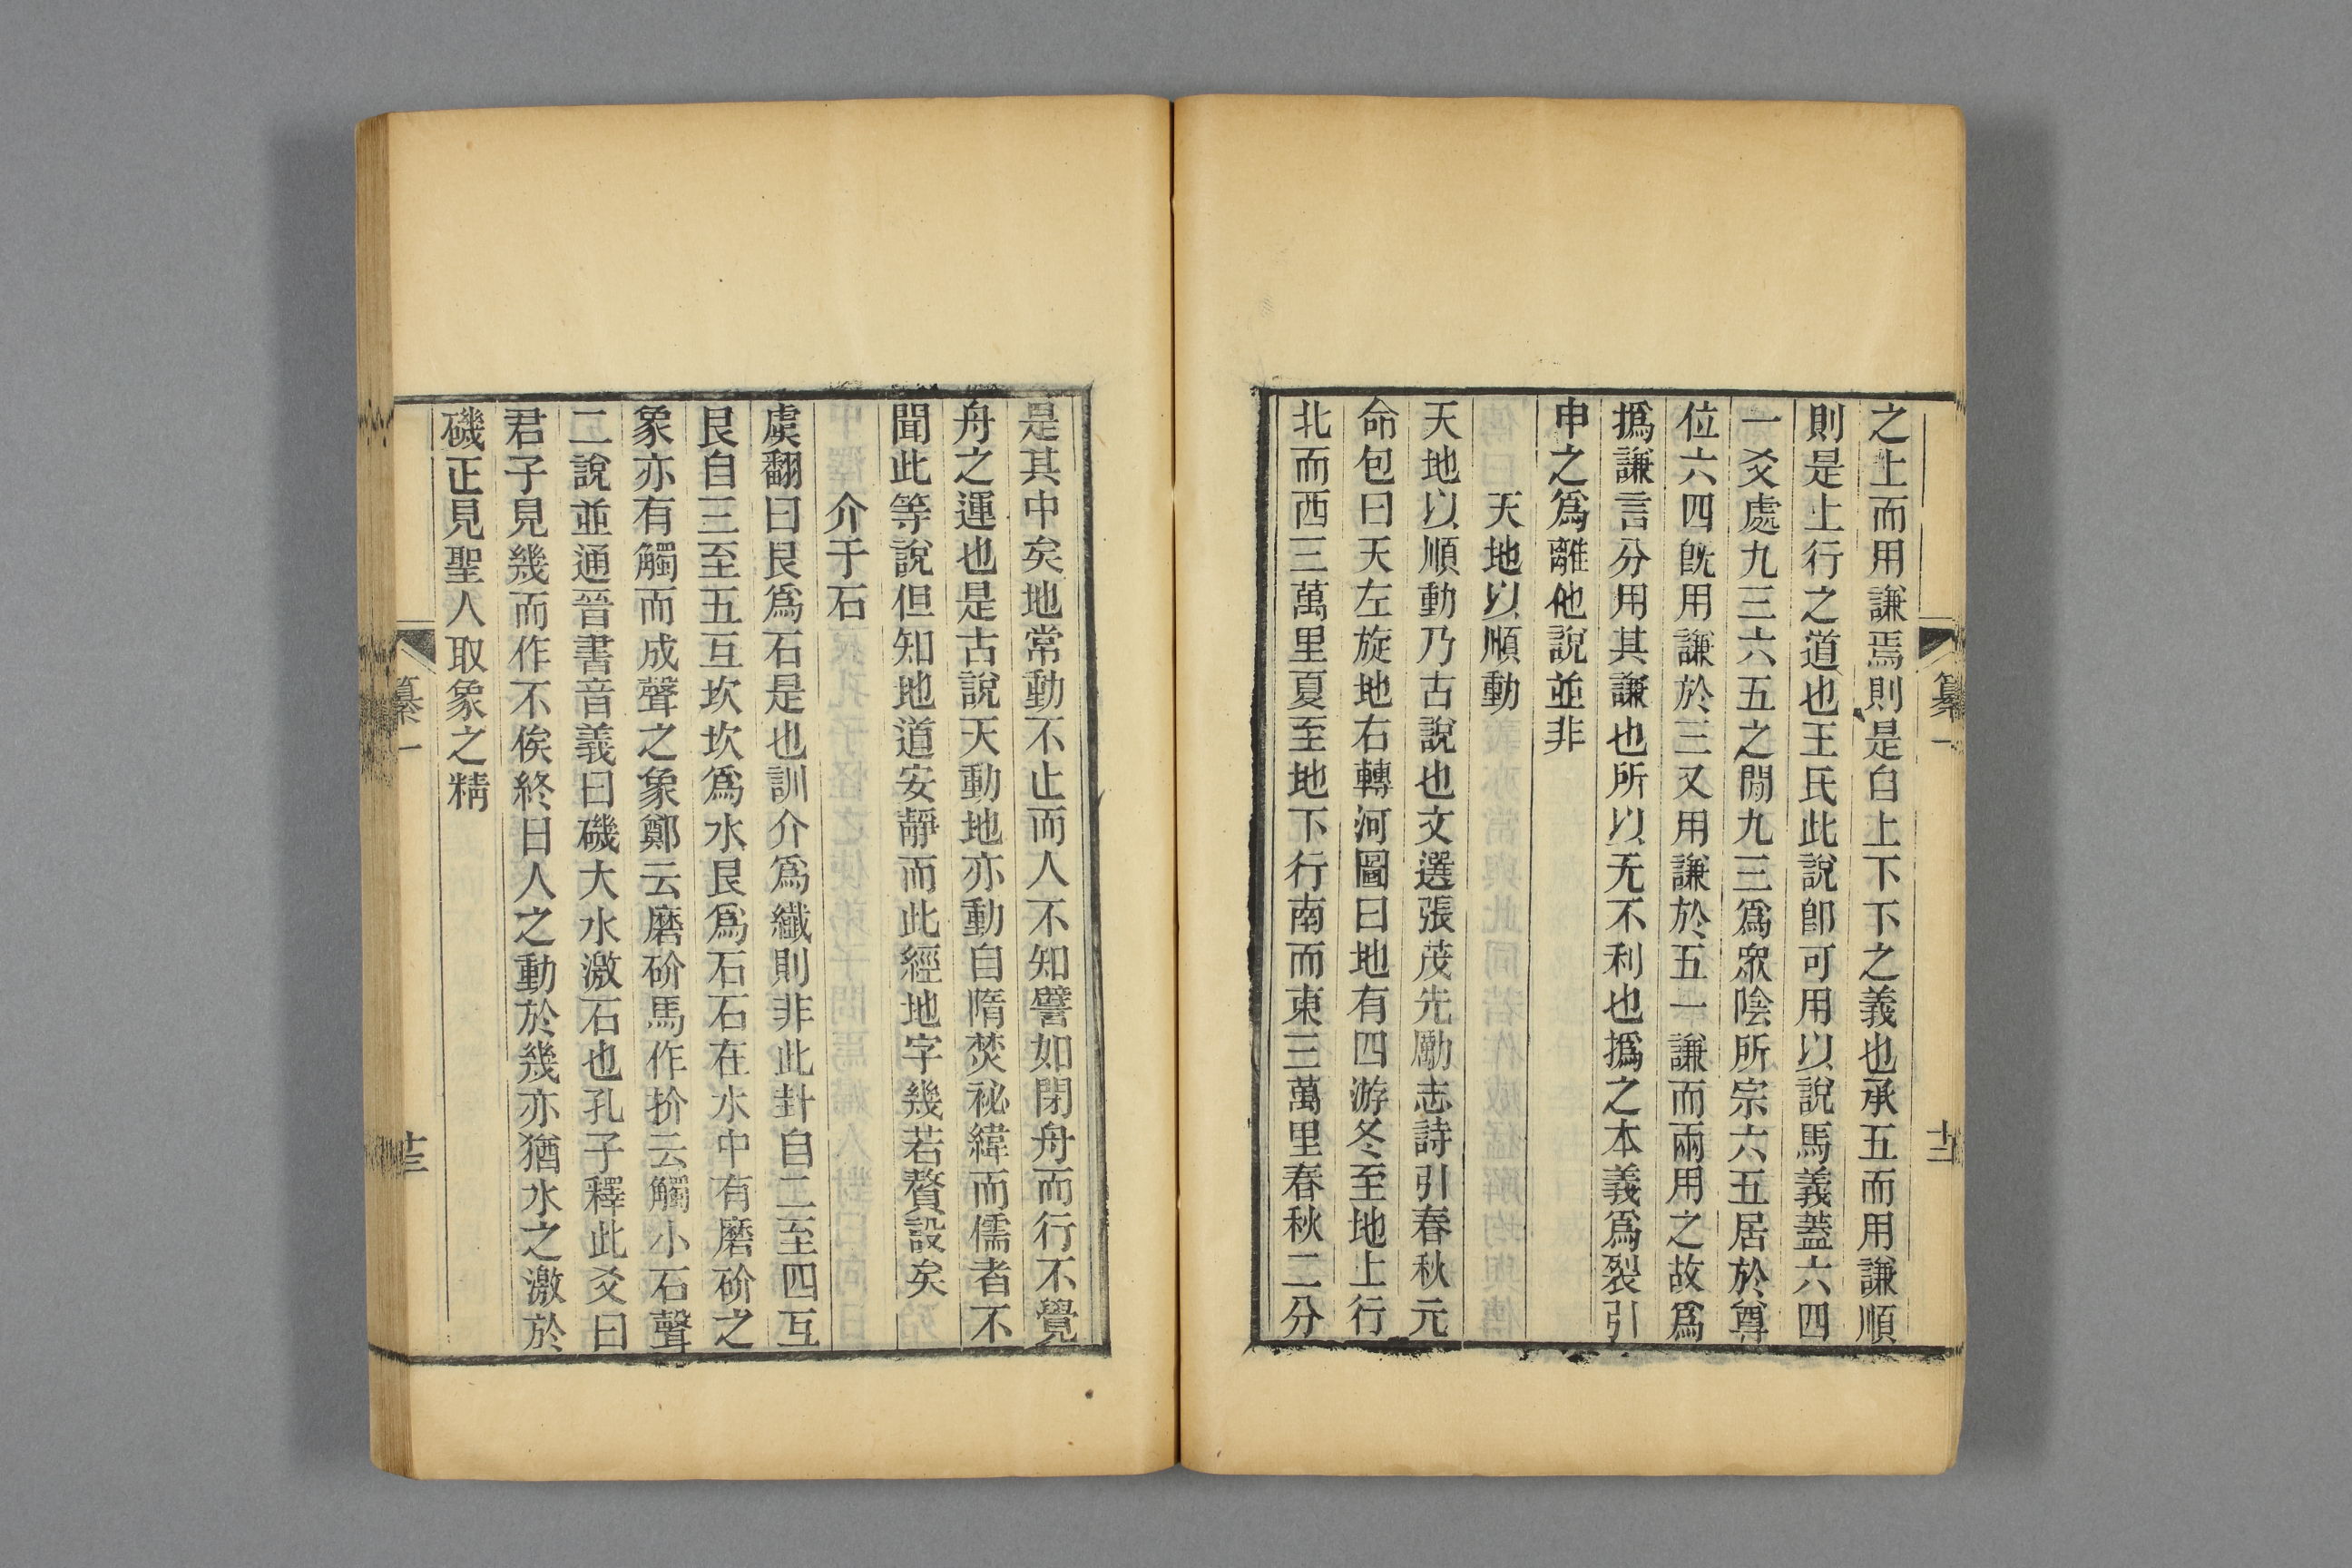 之上而用謙焉則是自上下下之義也承五而用謙順
則是上行之道也王氏此說卽可用以說馬義蓋六四
一爻處九三六五之閒九三爲眾陰所宗六五居於尊
位六四旣用謙於三又用謙於五一謙而兩用之故爲
撝謙言分用其謙也所以无不利也撝之本義爲裂引
申之爲離他說並非
天地以順動
天地以順動乃古說也文選張茂先勵志詩引春秋元
命包曰天左旋地右轉河圖曰地有四游冬至地上行
北而西三萬里夏至地下行南而東三萬里春秋二分
纂一
十二
是其中矣地常動不止而人不知譬如閉舟而行不覺
舟之運也是古說天動地亦動自隋焚祕緯而儒者不
聞此等說但知地道安靜而此經地字幾若贅設矣
介于石
虞翻曰艮爲石是也訓介爲纖則非此卦自二至四互
艮自三至五互坎坎爲水艮爲石石在水中有磨砎之
象亦有觸而成聲之象鄭云磨砎馬作扴云觸小石聲
二說並通晉書音義曰磯大水激石也孔子釋此爻曰
君子見幾而作不俟終日人之動於幾亦猶水之激於
磯正見聖人取象之精
纂一
十三